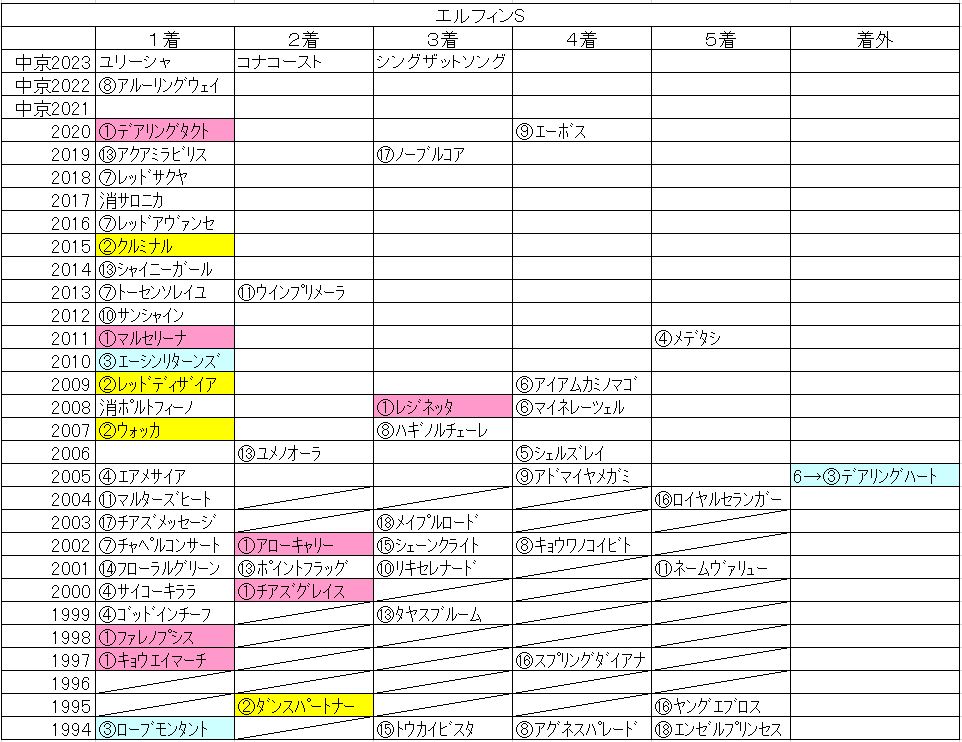 エルフィンS
１着 ２着 ３着 ４着 ５着 着外
中京2023 ユリーシャ コナコースト シングザットソング
中京2022 ⑧アルーリングウェイ
中京2021
2020 ①デアリングタクト ⑨エーポス
2019 ⑬アクアミラビリス ⑰ノーブルコア
2018 ⑦レッドサクヤ
2017 消サロニカ
2016 ⑦レッドアヴァンセ
2015 ②クルミナル
2014 ⑬シャイニーガール
2013 ⑦トーセンソレイユ ⑪ウインプリメーラ
2012 ⑩サンシャイン
2011 ①マルセリーナ ④メデタシ
2010 ③エーシンリターンズ
2009 ②レッドディザイア ⑥アイアムカミノマゴ
2008 消ポルトフィーノ ①レジネッタ ⑥マイネレーツェル
2007 ②ウォッカ ⑧ハギノルチェーレ
2006 ⑬ユメノオーラ ⑤シェルズレイ
2005 ④エアメサイア ⑨アドマイヤメガミ 6→③デアリングハート
2004 ⑪マルターズヒート ⑯ロイヤルセランガー
2003 ⑰チアズメッセージ ⑱メイプルロード
2002 ⑦チャペルコンサート ①アローキャリー ⑮シェーンクライト ⑧キョウワノコイビト
2001 ⑭フローラルグリーン ⑬ポイントフラッグ ⑩リキセレナード ⑪ネームヴァリュー
2000 ④サイコーキララ ①チアズグレイス
1999 ④ゴッドインチーフ ⑬タヤスブルーム
1998 ①ファレノプシス
1997 ①キョウエイマーチ ⑯スプリングダイアナ
1996
1995 ②ダンスパートナー ⑯ヤングエブロス
1994 ③ローブモンタント ⑮トウカイビスタ ⑧アグネスパレード ⑱エンゼルプリンセス